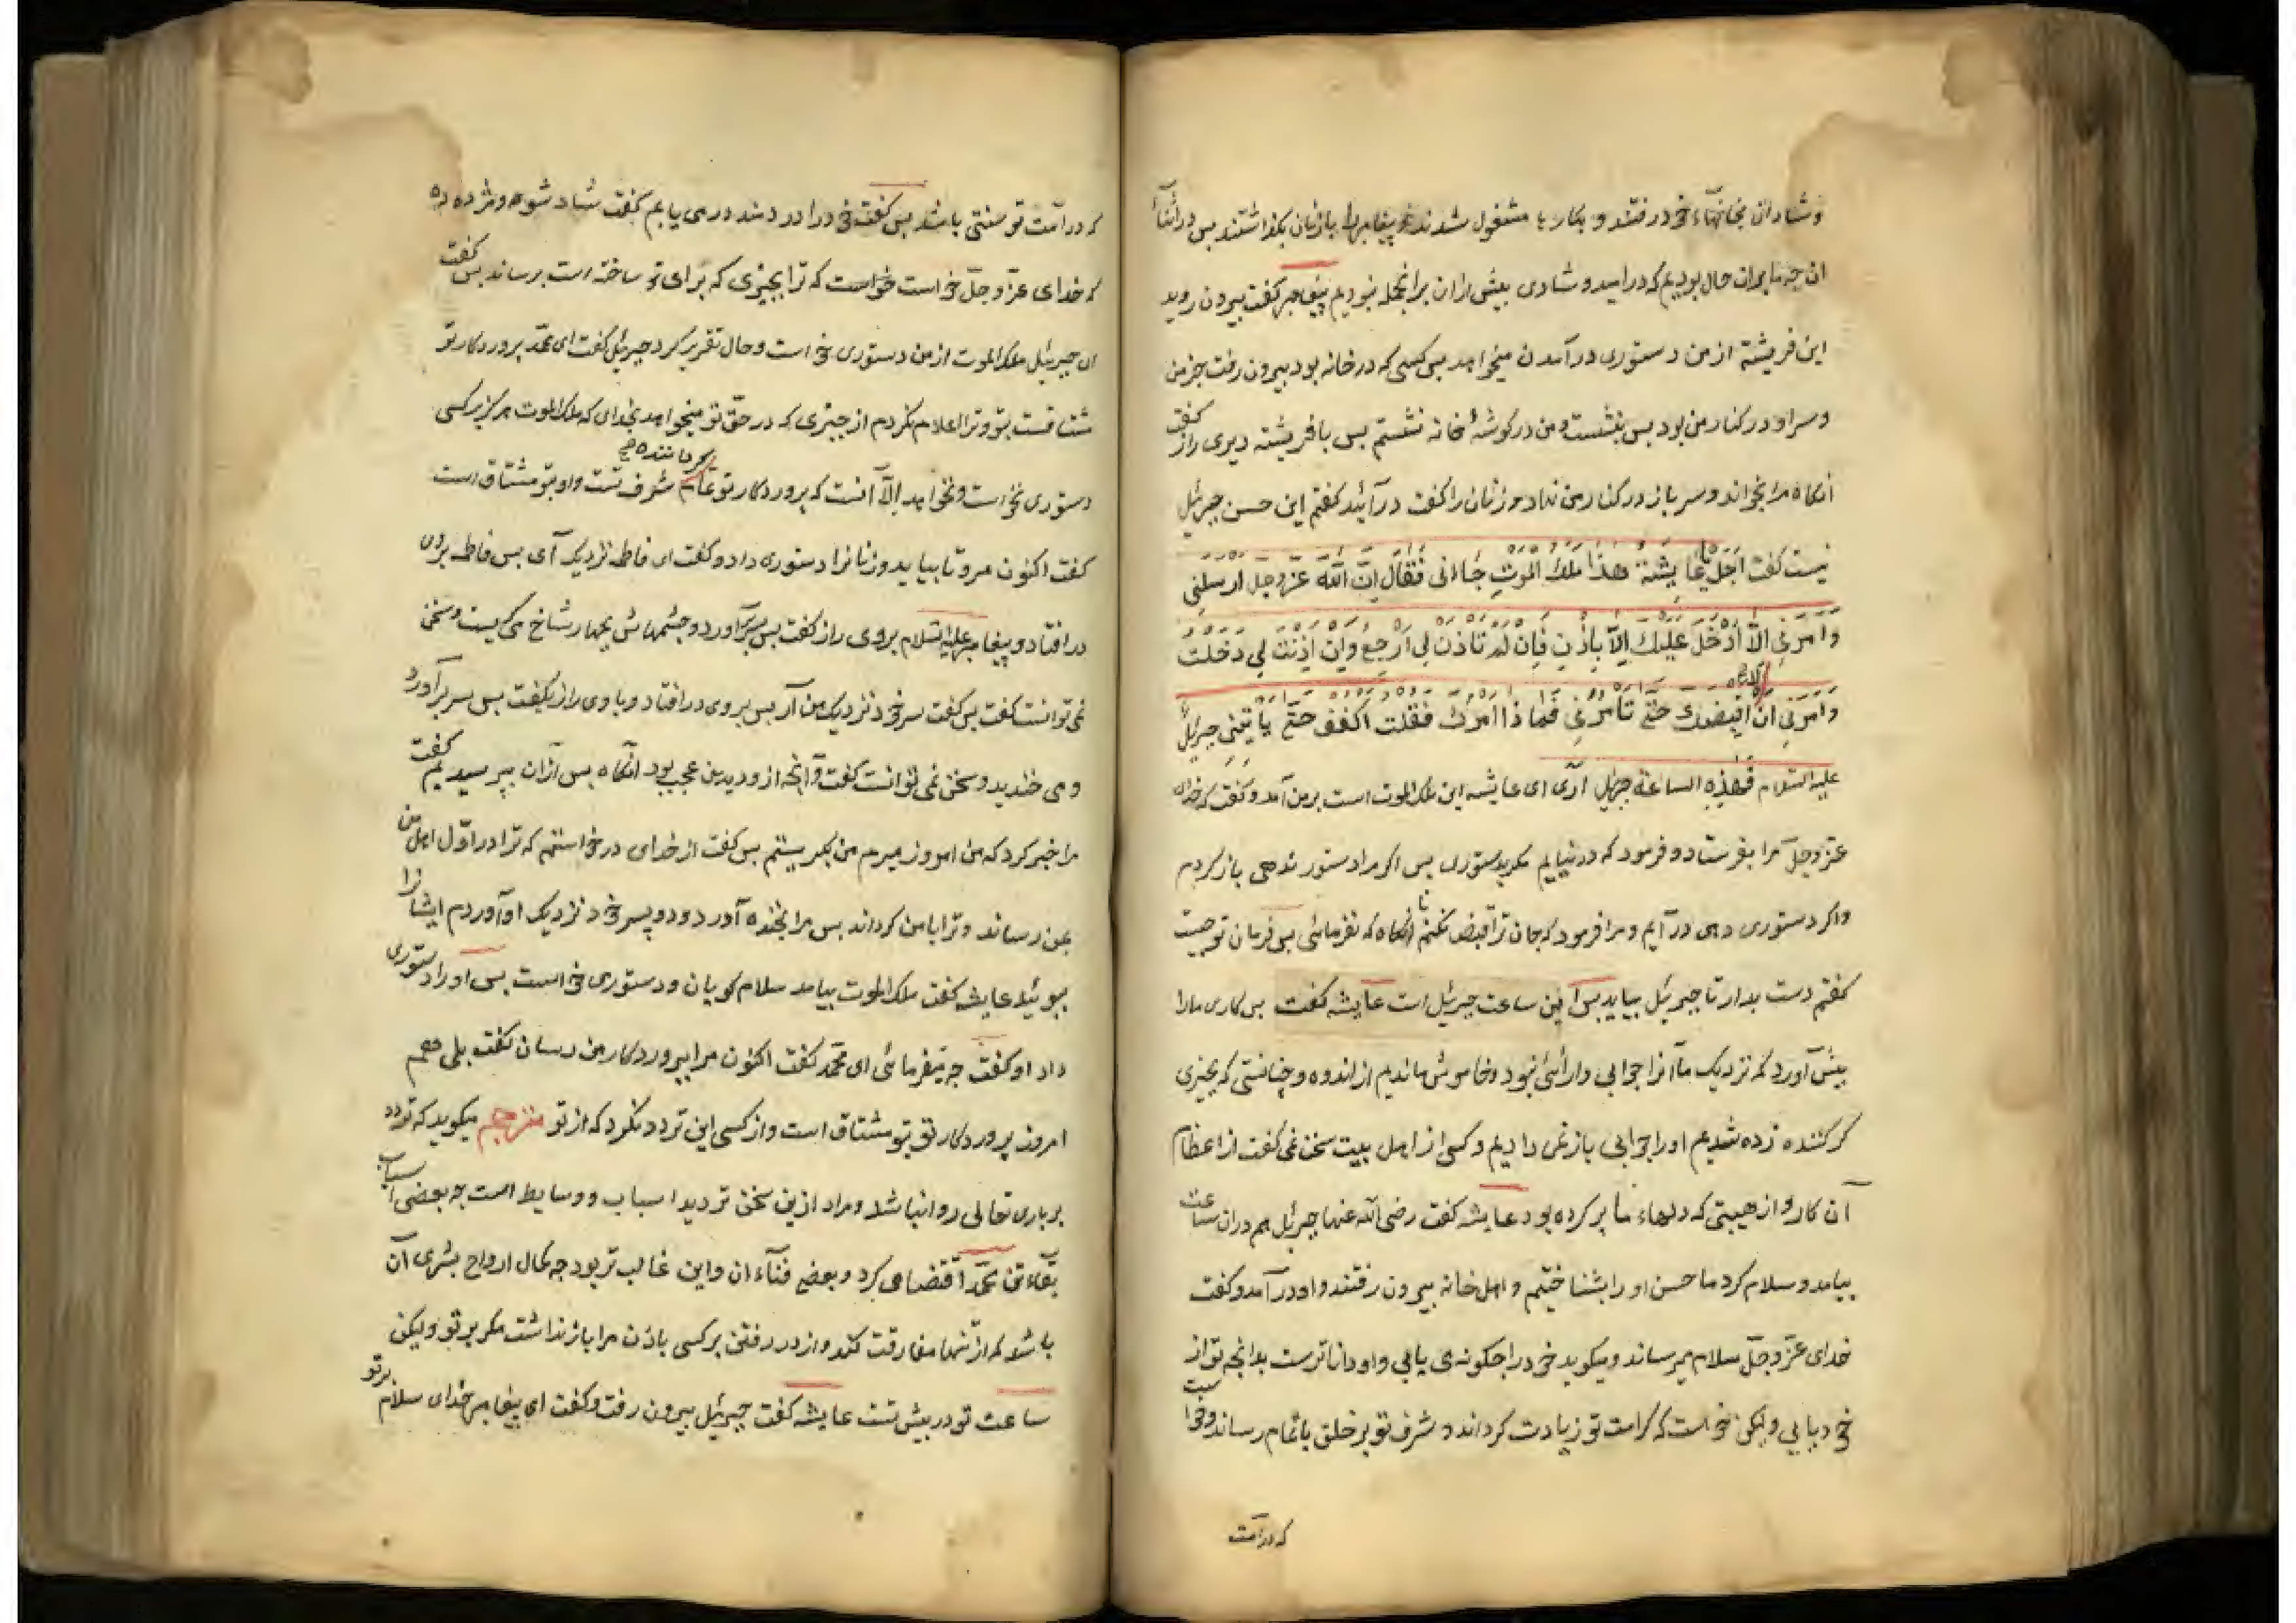 و شادان بخانهاء خود رفتند و بکارها مشغول شدند و پیغامبر را بازنان بکذاشتند بس در اثناء
ان جه ما بران حال بودیم که در امید و شادی بیش از ان برانجمله نبودیم پیغامبر کفت بیرون روید
این فریشته از من دستوری در آمدن میخواهد بس کسی که در خانه بود بیرون رفت جز من
و سر او در کنار من بود بس بنشست و من در کوشهٔ خانه نشستم بس با فریشته دیری راز کفت
آنکاه مرا بخواند و سر باز در کنار من نهاد و زنان را کفت در آیید کفتم این حسن جبرئیل
نیست کفت اَجَل یا عایشة هذا ملک الموت جاءنی فقال انّ الله عزّ و جلّ ارسلنی
وامرنی الّا ادخل علیک الّا باذن فان لم تاذن لی ارجع وان اذنت لی دخلت
وامرنی ان لا اقبضک حتّی تامرنی فما ذا امرک فقلت اکفف حتّی یأتینی جبرئیل
علیه السّلام فهذه الساعة جبرئیل آری ای عایشه این ملک الموت است بر من آمد و کفت که خدای
عزّ و جلّ مرا بفرستاد و فرمود که در نیایم مکر بدستوری بس اکر مرا دستور ندهی باز کردم
واکر دستوری دهی در آیم و مرا فرمود که جان ترا قبض نکنم تا آنکاه که نفرمائی بس فرمان تو جیست
کفتم دست بدار تا جبرئیل بیاید بس این ساعت جبرئیل است عایشه کفت بس کاری مارا
بیش آورد که نزدیک ما آنرا جوابی و رائی نبود و خاموش ماندیم از اندوه و چنانستی که بچیزی
کر کننده زده شدیم او را جوابی باز نمی دادیم و کسی از اهل بیت سخن نمی کفت از اعظام
آن کار و از هیبتی که دلهاء ما پر کرده بود عایشه کفت رضی الله عنها جبرئیل هم دران ساعت
بیامد و سلام کرد ما حسن او را بشناختیم و اهل خانه بیرون رفتند و او در آمد و کفت
خدای عزّ و جلّ سلام میرساند و میکوید خود را جکونه می یابی و او داناترست بدانجه تو از
خود یابی ولیکن خواست که کرامت تو زیادت کرداند و شرف تو بر خلق باتمام رساند و خواست
که در امت
که در امّت تو سنتی باشد بس کفت خود را دردمند در می یابم کفت شاد شو و مژده ده
که خدای عزّ و جلّ خواست که ترا بچیزی که برای تو ساخته است برساند بس کفت
ای جبرئیل ملک الموت از من دستوری خواست و حال تقریر کرد جبرئیل کفت ای محمّد پروردکار تو
مشتاقست بتو و ترا اعلام نکردم از چیزی که در حقّ تو میخواهد بخدای که ملک الموت هرکز بر کسی
دستوری نخواست و نخواهد الّا آنست که پروردکار تو تمام کرداننده شرف تست و او بتو مشتاق است
کفت اکنون مرو تا بیاید و زنانرا دستوری داد و کفت ای فاطمه نزدیک آی بس فاطمه بروی
در افتاد و پیغامبر علیه السّلام بر وی راز کفت بس سر بر آورد و چشمهاش بچهار شاخ می کریست و سخن
نمی توانست کفت بس کفت سر خود نزدیک من آر بس بروی در افتاد و با وی راز بکفت بس سر بر آورد
و می خندید و سخن نمی توانست کفت و آنچه از و دیدیم عجب بود آنکاه بس از ان بپرسیدیم کفت
مرا خبر کرد که من امروز میرم من بکریستم بس کفت از خدای در خواستم که ترا در اوّل اهل من
بمن رساند و ترا با من کرداند بس مرا بخنده آورد و دو پسر خود نزدیک او آوردم ایشانرا
ببوئید عایشه کفت ملک الموت بیامد سلام کویان و دستوری خواست بس او را دستوری
داد او کفت چه میفرمائی ای محمّد کفت اکنون مرا بپروردکار من رسان کفت بلی هم
امروز پروردکار تو بتو مشتاق است و از کسی این تردد نکرد که از تو مترجم میکوید که تردد
بر باری تعالی روا نباشد و مراد ازین سخن تردید اسباب و وسایط است چه بعضی اسباب
بقاء تن محمّد اقتضا می کرد و بعضی فناء ان و این غالب تر بود چه کمال ارواح بشری آن
باشد که از تنها مفارقت کند و از در رفتن بر کسی باذن مرا باز نداشت مکر بر تو ولیکن
ساعت تو در پیش تست عایشه کفت جبرئیل بیرون رفت و کفت ای پیغامبر خدای سلام برتو